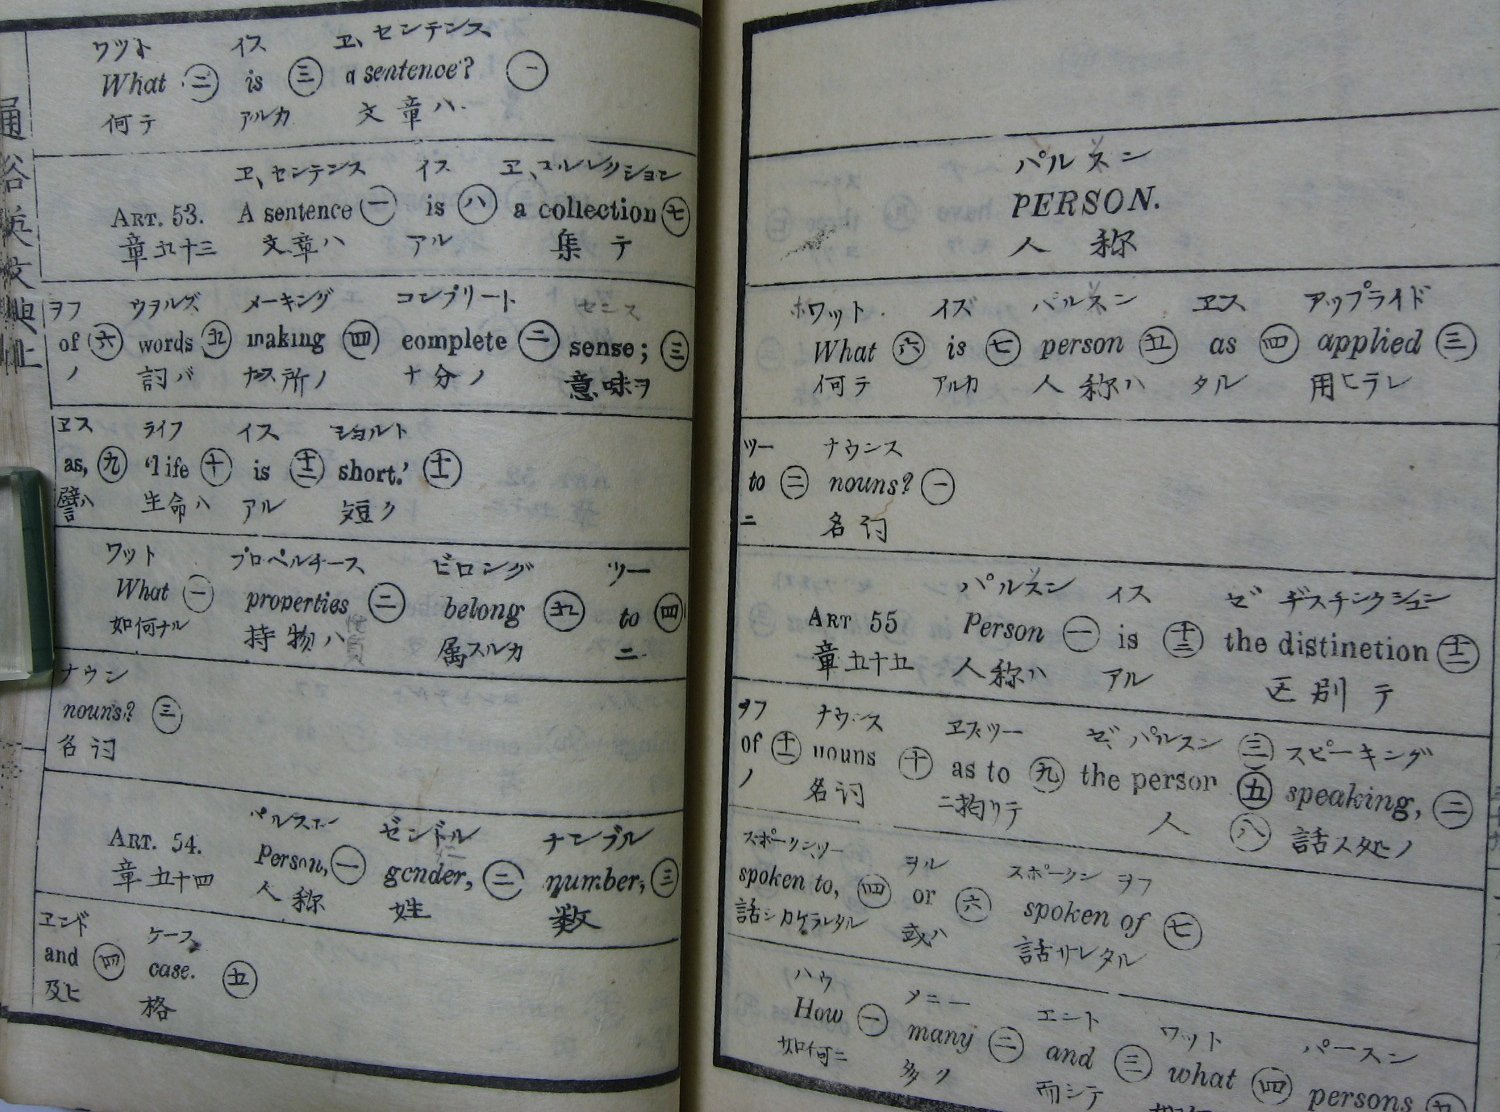 ワツト イス ヱ、センテンス
What 二 is 三 a sentence? 一
何テ アルカ 文章ハ
ヱ、センテンス イス ヱ、コルレクション
ART. 53. A sentence 一 is 八 a collection 七
章五十三 文章ハ アル 集テ
ヲフ ウヲルズ メーキング コンプリート センス
of 六 words 五 making 四 complete 二 sense; 三
ノ 詞ハ 所ノ 十分ノ 意味ヲ
ヱス ライフ イス ショルト
as, 九 'life 十 is 十二 short.' 十一
譬ハ 生命ハ アル 短ク
ワット プロペルチース ビロング ツー
What 一 properties 二 belong 五 to 四
如何ナル 持物ハ 属スルカ ニ
ナウン
nouns? 三
名詞
パルスン ゼンドル ナンブル
ART. 54. Person, 一 gender, 二 number, 三
章五十四 人称 姓 数
ヱンド ケーフ
and 四 case. 五
及ヒ 格
通俗英文典上
パルスン
PERSON.
人称
ホワット イズ パルスン ヱス アップライド
What 六 is 七 person 五 as 四 applied 三
何テ アルカ 人称ハ タル 用ヒラレ
ツー ナウンス
to 二 nouns? 一
ニ 名詞
パルスン イス ゼ ヂスチンクション
ART 55 Person 一 is 十三 the distinetion 十二
章五十五 人称ハ アル 区別テ
ヲフ ナウンス ヱズツー ゼ、パルスン 三 スピーキング
of 十一 nouns 十 as to 九 the person 五 speaking, 二
ノ 名詞 ニ拘リテ 人 八 話ス処ノ
スポークン、ツー ヲル スポークン ヲフ
spoken to, 四 or 六 spoken of 七
話シカケラレタル 或ハ 話サレタル
ハウ メニー エント ワット パースン
How 一 many 二 and 三 what 四 persons 五
如何ニ 多ク 而シテ